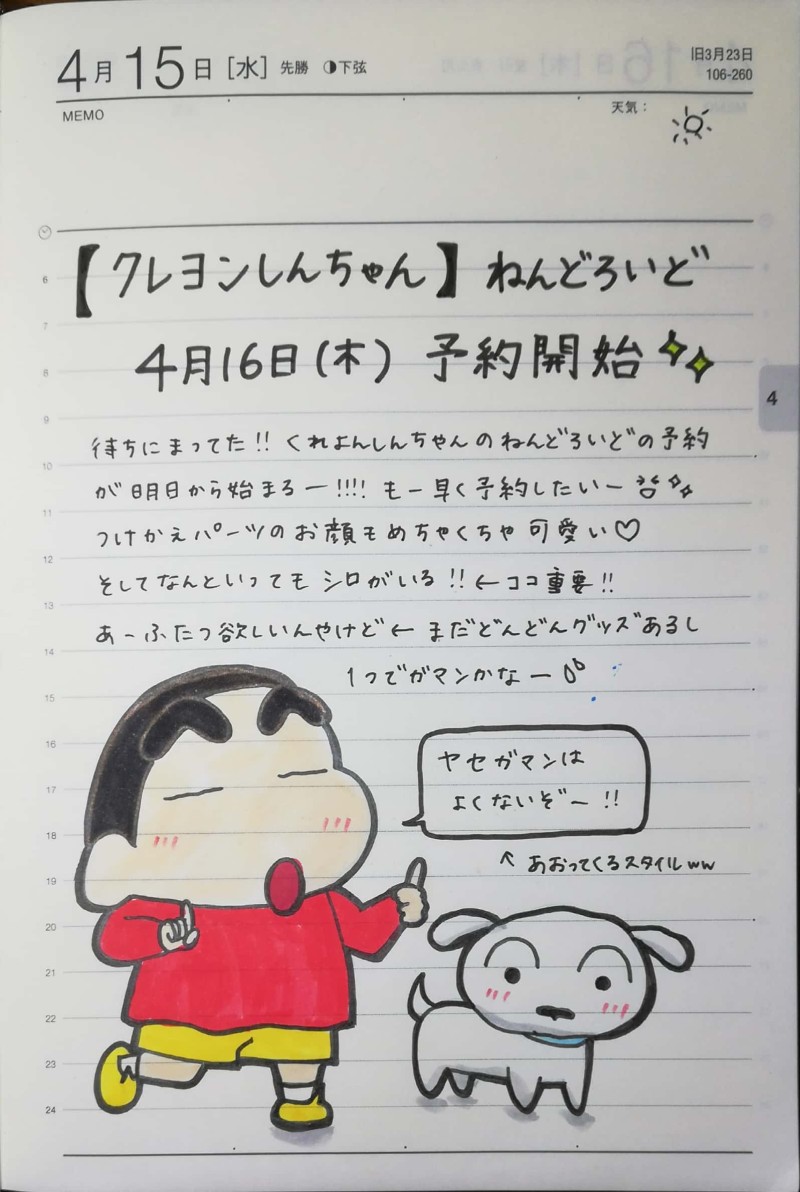 4月15日[水] 先勝 ◑下弦
旧3月23日
106-260
MEMO
天気：
【クレヨンしんちゃん】ねんどろいど
4月16日(木) 予約開始
待ちにまってた!! くれよんしんちゃんのねんどろいどの予約
が明日から始まるー!!!! もー早く予約したいー
つけかえパーツのお顔もめちゃくちゃ可愛い♡
そしてなんといってもシロがいる!! ←ココ重要!!
あーふたつ欲しいんやけど← まだどんどんグッズあるし
1つでガマンかなー
ヤセガマンは
よくないぞー!!
↑あおってくるスタイルww
4
6
7
8
9
10
11
12
13
14
15
16
17
18
19
20
21
22
23
24